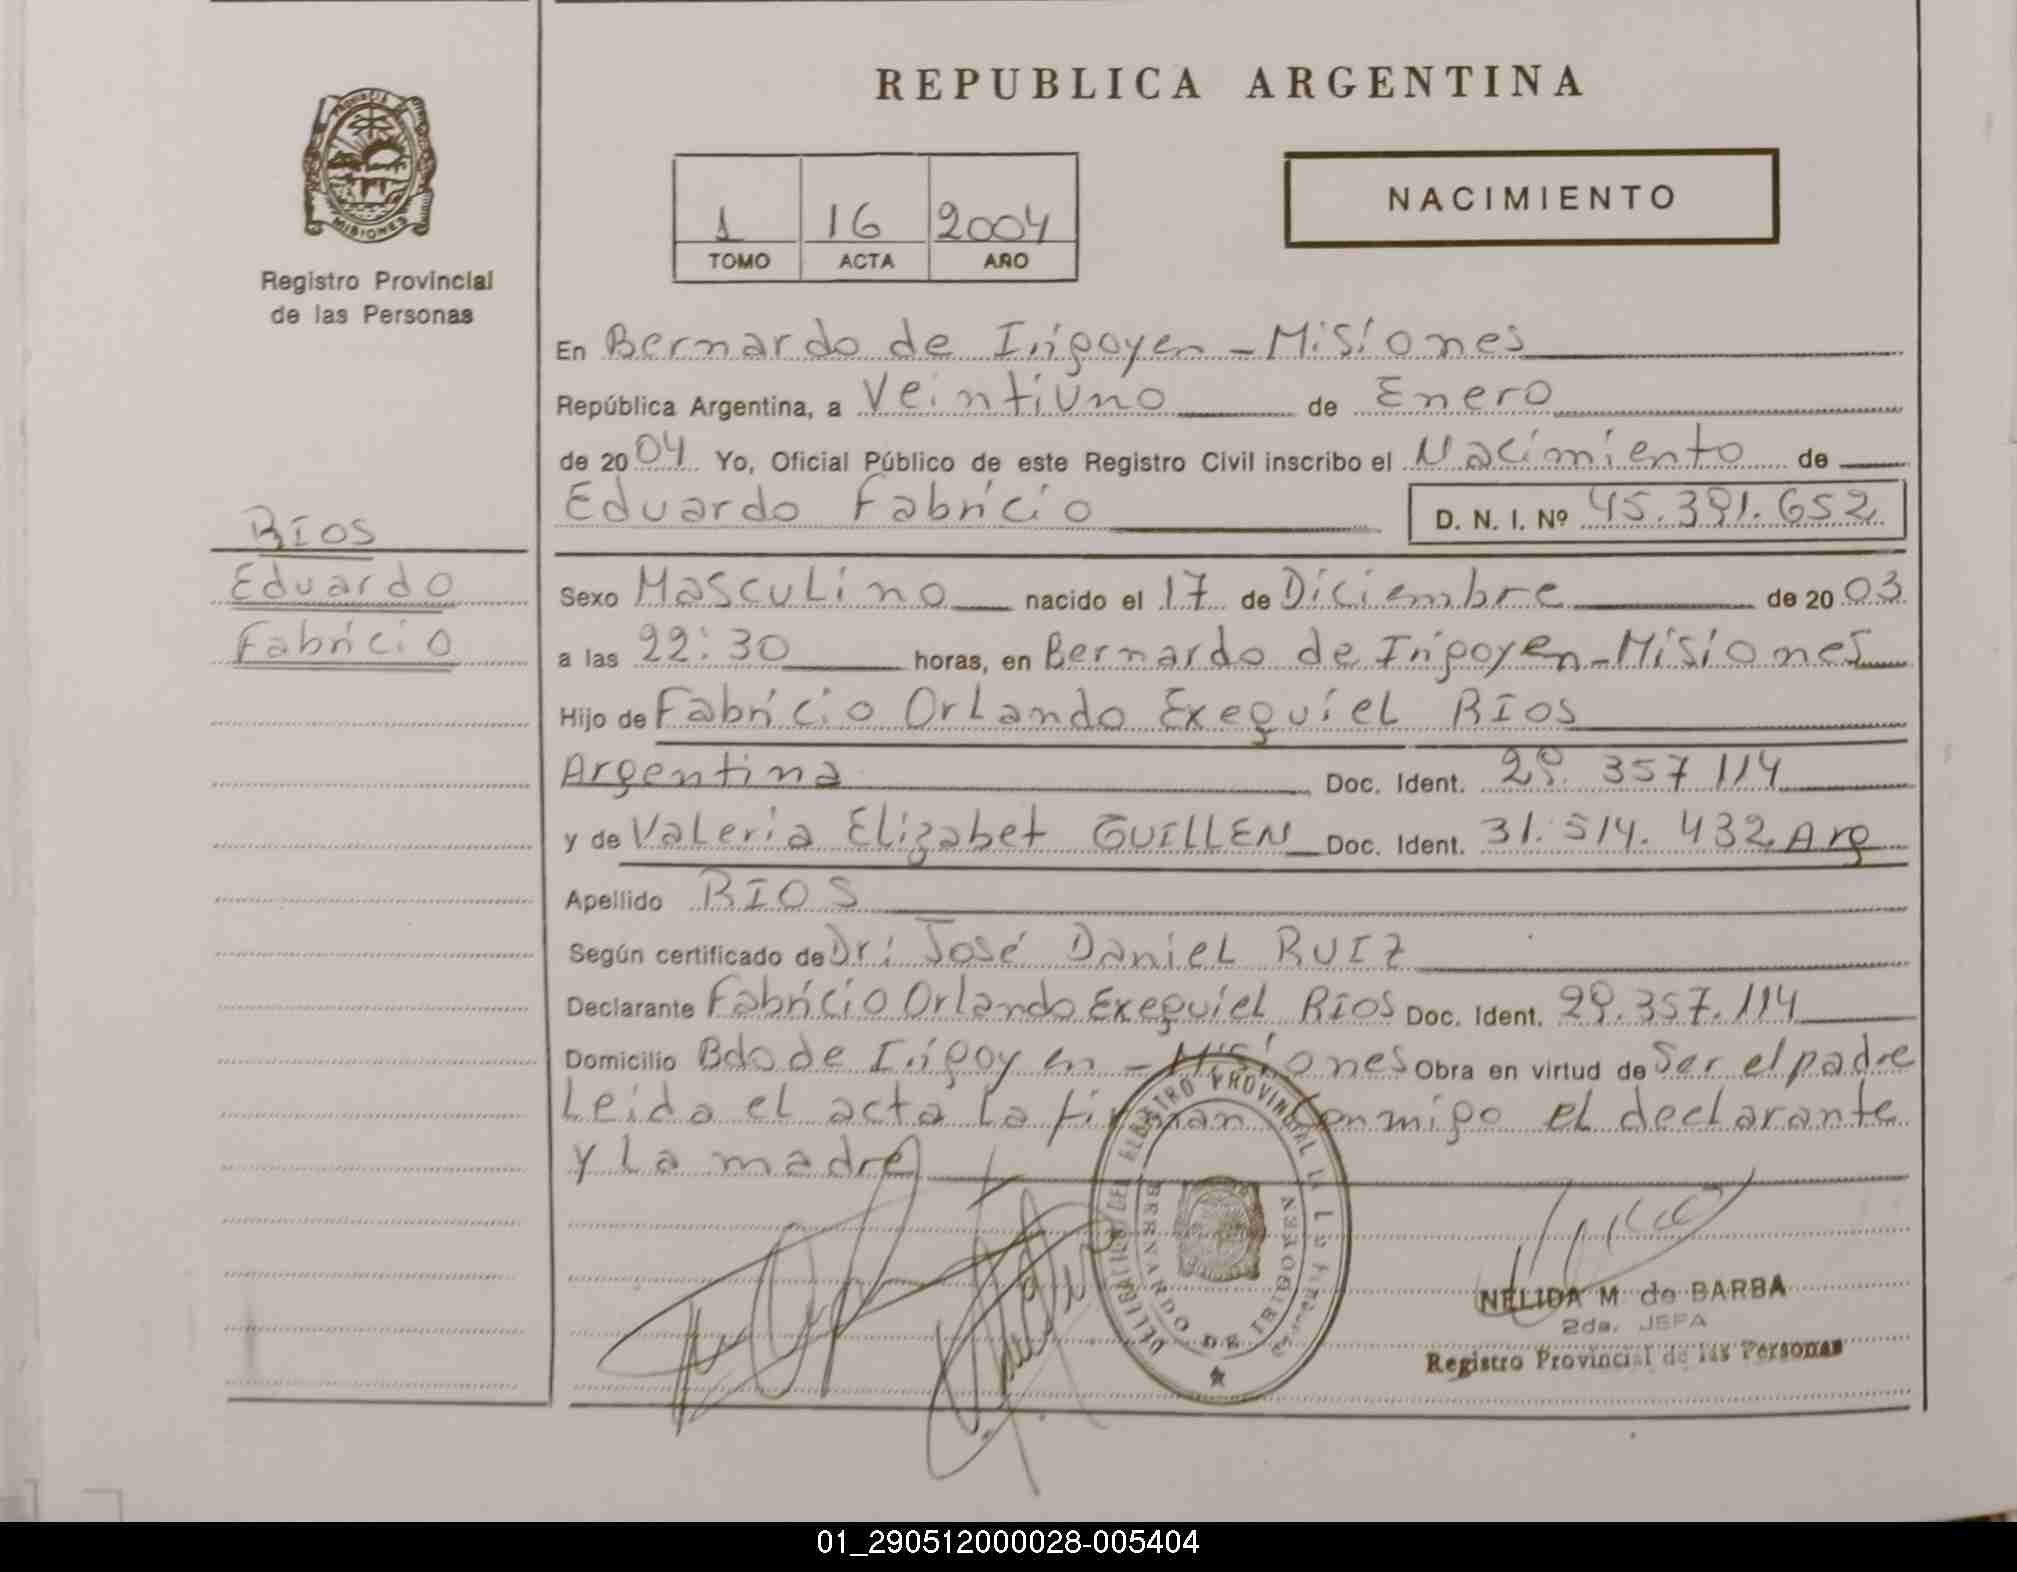 REPUBLICA ARGENTINA
PROVINCIA
MISIONES
Registro Provincial
de las Personas
1 16 2004
TOMO ACTA AÑO
NACIMIENTO
En Bernardo de Irigoyen - Misiones
República Argentina, a Veintiuno de Enero
de 2004 Yo, Oficial Público de este Registro Civil inscribo el Nacimiento de
Eduardo Fabricio D. N. I. Nº 45.391.652
RIOS
Eduardo
Fabricio
Sexo Masculino nacido el 17 de Diciembre de 2003
a las 22:30 horas, en Bernardo de Irigoyen - Misiones
Hijo de Fabricio Orlando Exequiel RIOS
Argentina Doc. Ident. 29.357 114
y de Valeria Elizabet GUILLEN Doc. Ident. 31.514.432 Arg
Apellido RIOS
Según certificado de Dr: José Daniel RUIZ
Declarante Fabricio Orlando Exequiel RIOS Doc. Ident. 29.357.114
Domicilio Bdo de Irigoyen - Misiones Obra en virtud de Ser el padre
Leida el acta la firman conmigo el declarante
y La madre
PROVINCIAL
BERNARDO DE IRIGOYEN
NELIDA M de BARBA
2da. JEFA
Registro Provincial de las Personas
01_290512000028-005404